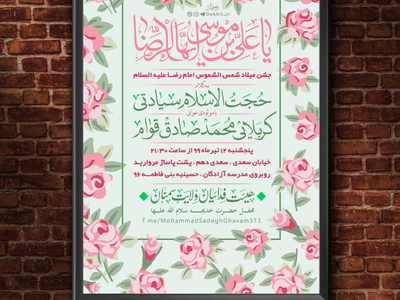 Dokhit.ir
یا علی بن موسی ایها الرضا
جشن میلاد شمس الشموس امام رضا علیه السلام
به کلام
حجت الاسلام سیادتی
با مولودی خوانی
کربلائی محمد صادق قوام
پنجشنبه ۱۲ تیر ماه ۹۹ از ساعت ۲۱:۳۰
خیابان سعدی ، سعدی دهم ، پشت پاساژ مروارید
روبروی مدرسه آزادگان ، حسینیه بنی فاطمه ۹۶
هیئت فدائیان ولایت سمنان
محفل حضرت خدیجه سلام الله علیها
T.me/MohammadSadeghGhavam313